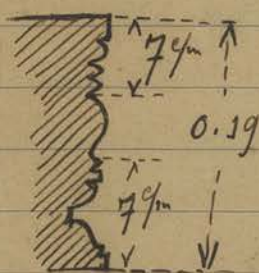 7 c/m
0.19
7 c/m